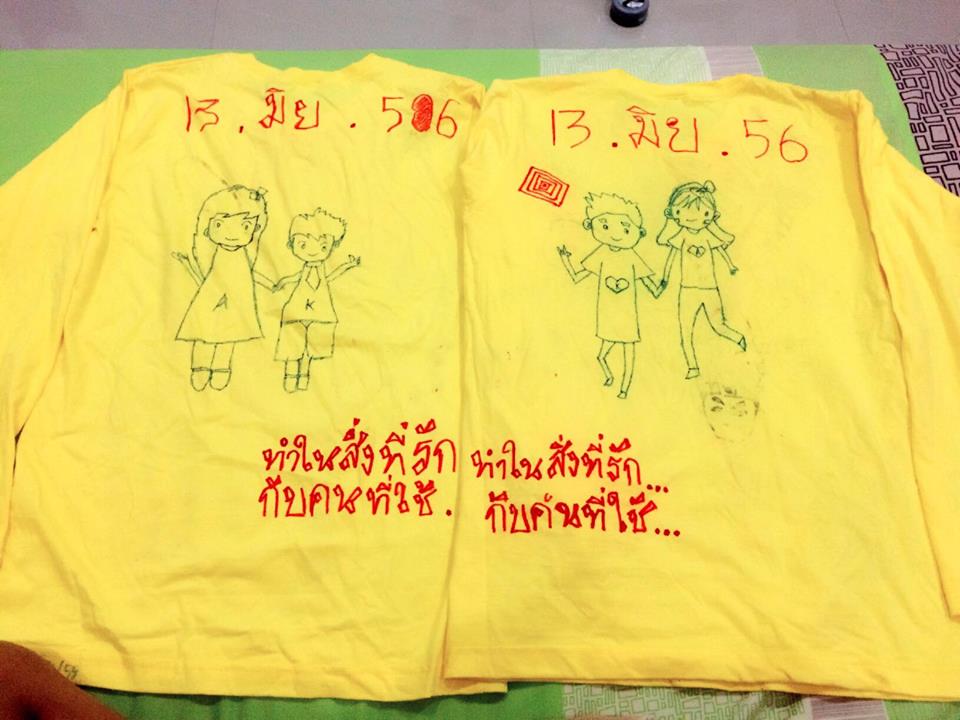 13 . มิย . 56
A K
ทำในสิ่งที่รัก
กับคนที่ใช่ .
13 . มิย . 56
ทำในสิ่งที่รัก...
กับคนที่ใช่...